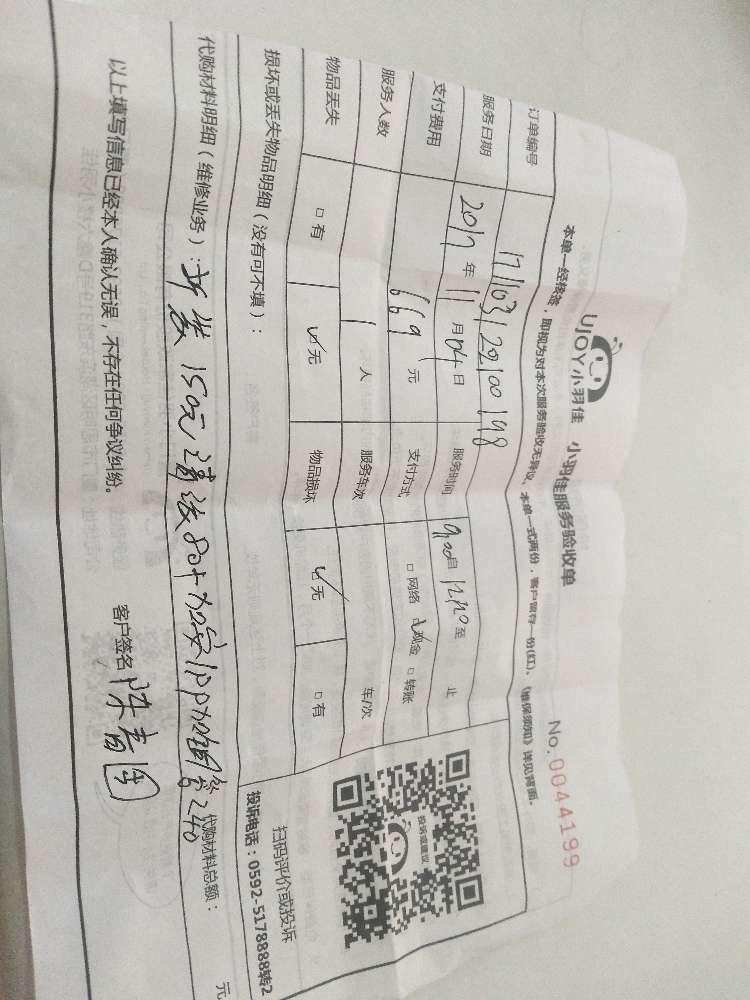 UJOY小羽佳 小羽佳服务验收单
No.0044199
本单一经核签，即视为对本次服务验收无异议，本单一式两份，客户留存一份(红)，《维保须知》详见背面。
订单编号 171103120100198
服务日期 2017年11月04日 服务时间 9,00自12,10至 止
支付费用 669元 支付方式 □网络 ☑现金 □转账
服务人数 1人 服务车次 车/次
物品丢失 □有 ☑无 物品损坏 ☑无 □有
损坏或丢失物品明细（没有可不填）：
代购材料明细（维修业务）：150元清洗80+加氟100加铜管240
代购材料总额： 元
以上填写信息已经本人确认无误，不存在任何争议纠纷。
客户签名
投诉或建议
扫码评价或投诉
投诉电话：0592-5178888转2